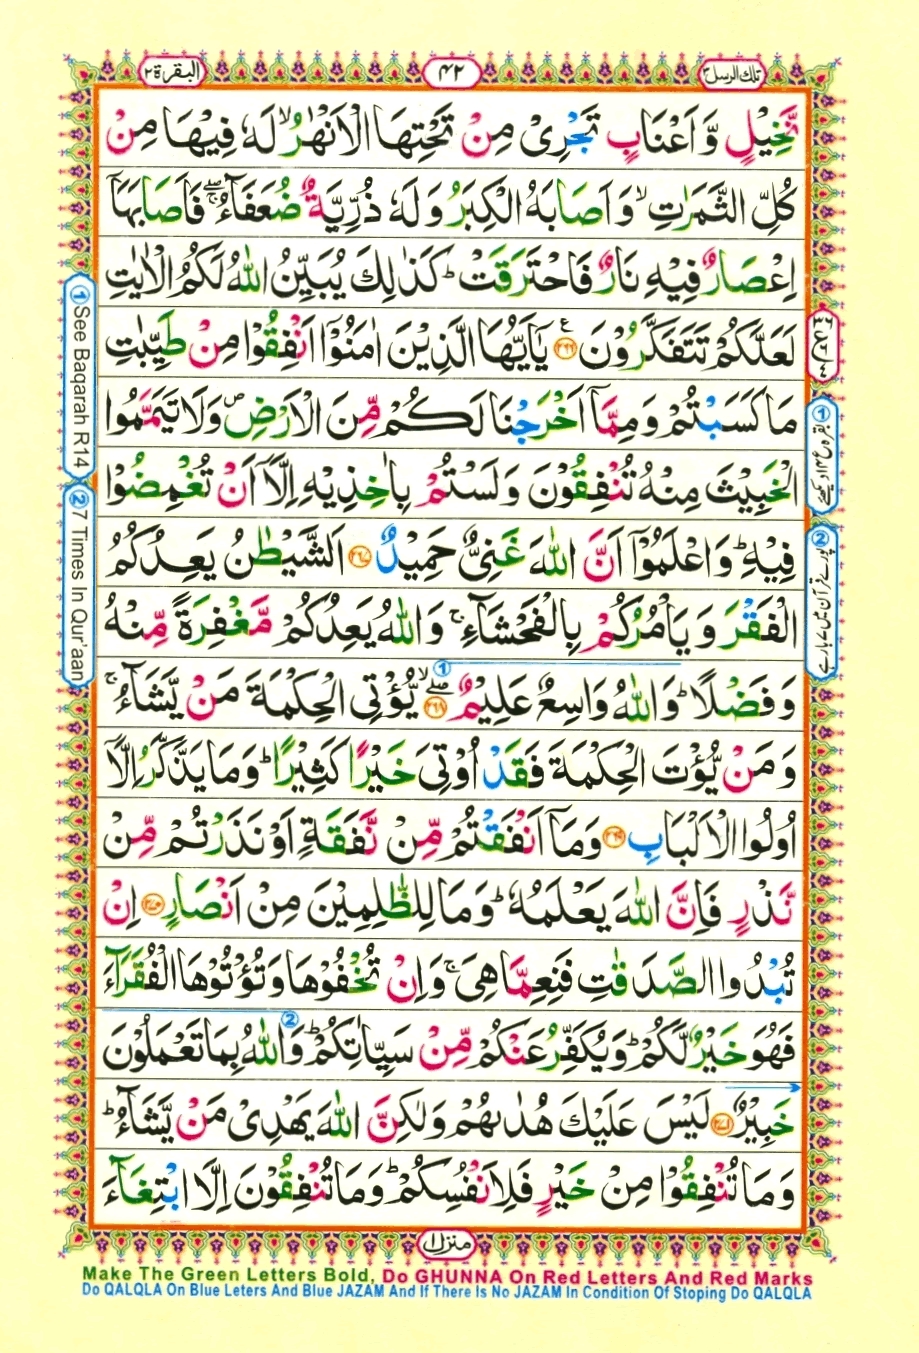 تلك الرسل ٣
٤٢
البقرة ٢
نَّخِيْلٍ وَّ اَعْنَابٍ تَجْرِىْ مِنْ تَحْتِهَا الْاَنْهٰرُ ۙ لَهٗ فِيْهَا مِنْ
كُلِّ الثَّمَرٰتِ ۙ وَ اَصَابَهُ الْكِبَرُ وَ لَهٗ ذُرِّيَّةٌ ضُعَفَآءُ ۖۚ فَاَصَابَهَاۤ
اِعْصَارٌ فِيْهِ نَارٌ فَاحْتَرَقَتْ ؕ كَذٰلِكَ يُبَيِّنُ اللّٰهُ لَكُمُ الْاٰيٰتِ
لَعَلَّكُمْ تَتَفَكَّرُوْنَ ﴿۲۶۶﴾ يٰۤاَيُّهَا الَّذِيْنَ اٰمَنُوْۤا اَنْفِقُوْا مِنْ طَيِّبٰتِ
مَا كَسَبْتُمْ وَ مِمَّاۤ اَخْرَجْنَا لَكُمْ مِّنَ الْاَرْضِ ۪ وَ لَا تَيَمَّمُوا
الْخَبِيْثَ مِنْهُ تُنْفِقُوْنَ وَ لَسْتُمْ بِاٰخِذِيْهِ اِلَّاۤ اَنْ تُغْمِضُوْا
فِيْهِ ؕ وَ اعْلَمُوْۤا اَنَّ اللّٰهَ غَنِىٌّ حَمِيْدٌ ﴿۲۶۷﴾ اَلشَّيْطٰنُ يَعِدُكُمُ
الْفَقْرَ وَ يَاْمُرُكُمْ بِالْفَحْشَآءِ ۚ وَ اللّٰهُ يَعِدُكُمْ مَّغْفِرَةً مِّنْهُ
وَ فَضْلًا ؕ وَ اللّٰهُ وَاسِعٌ عَلِيْمٌ ﴿۲۶۸﴾ ۖۙ يُّؤْتِى الْحِكْمَةَ مَنْ يَّشَآءُ ۚ
وَ مَنْ يُّؤْتَ الْحِكْمَةَ فَقَدْ اُوْتِىَ خَيْرًا كَثِيْرًا ؕ وَ مَا يَذَّكَّرُ اِلَّاۤ
اُولُوا الْاَلْبَابِ ﴿۲۶۹﴾ وَ مَاۤ اَنْفَقْتُمْ مِّنْ نَّفَقَةٍ اَوْ نَذَرْتُمْ مِّنْ
نَّذْرٍ فَاِنَّ اللّٰهَ يَعْلَمُهٗ ؕ وَ مَا لِلظّٰلِمِيْنَ مِنْ اَنْصَارٍ ﴿۲۷۰﴾ اِنْ
تُبْدُوا الصَّدَقٰتِ فَنِعِمَّا هِىَ ۚ وَ اِنْ تُخْفُوْهَا وَ تُؤْتُوْهَا الْفُقَرَآءَ
فَهُوَ خَيْرٌ لَّكُمْ ؕ وَ يُكَفِّرُ عَنْكُمْ مِّنْ سَيِّاٰتِكُمْ ؕ وَ اللّٰهُ بِمَا تَعْمَلُوْنَ
خَبِيْرٌ ﴿۲۷۱﴾ لَيْسَ عَلَيْكَ هُدٰىهُمْ وَ لٰكِنَّ اللّٰهَ يَهْدِىْ مَنْ يَّشَآءُ ؕ
وَ مَا تُنْفِقُوْا مِنْ خَيْرٍ فَلِاَنْفُسِكُمْ ؕ وَ مَا تُنْفِقُوْنَ اِلَّا ابْتِغَآءَ
① See Baqarah R14
② 7 Times In Qur'aan
منزل ۱
Make The Green Letters Bold, Do GHUNNA On Red Letters And Red Marks
Do QALQLA On Blue Leters And Blue JAZAM And If There Is No JAZAM In Condition Of Stoping Do QALQLA